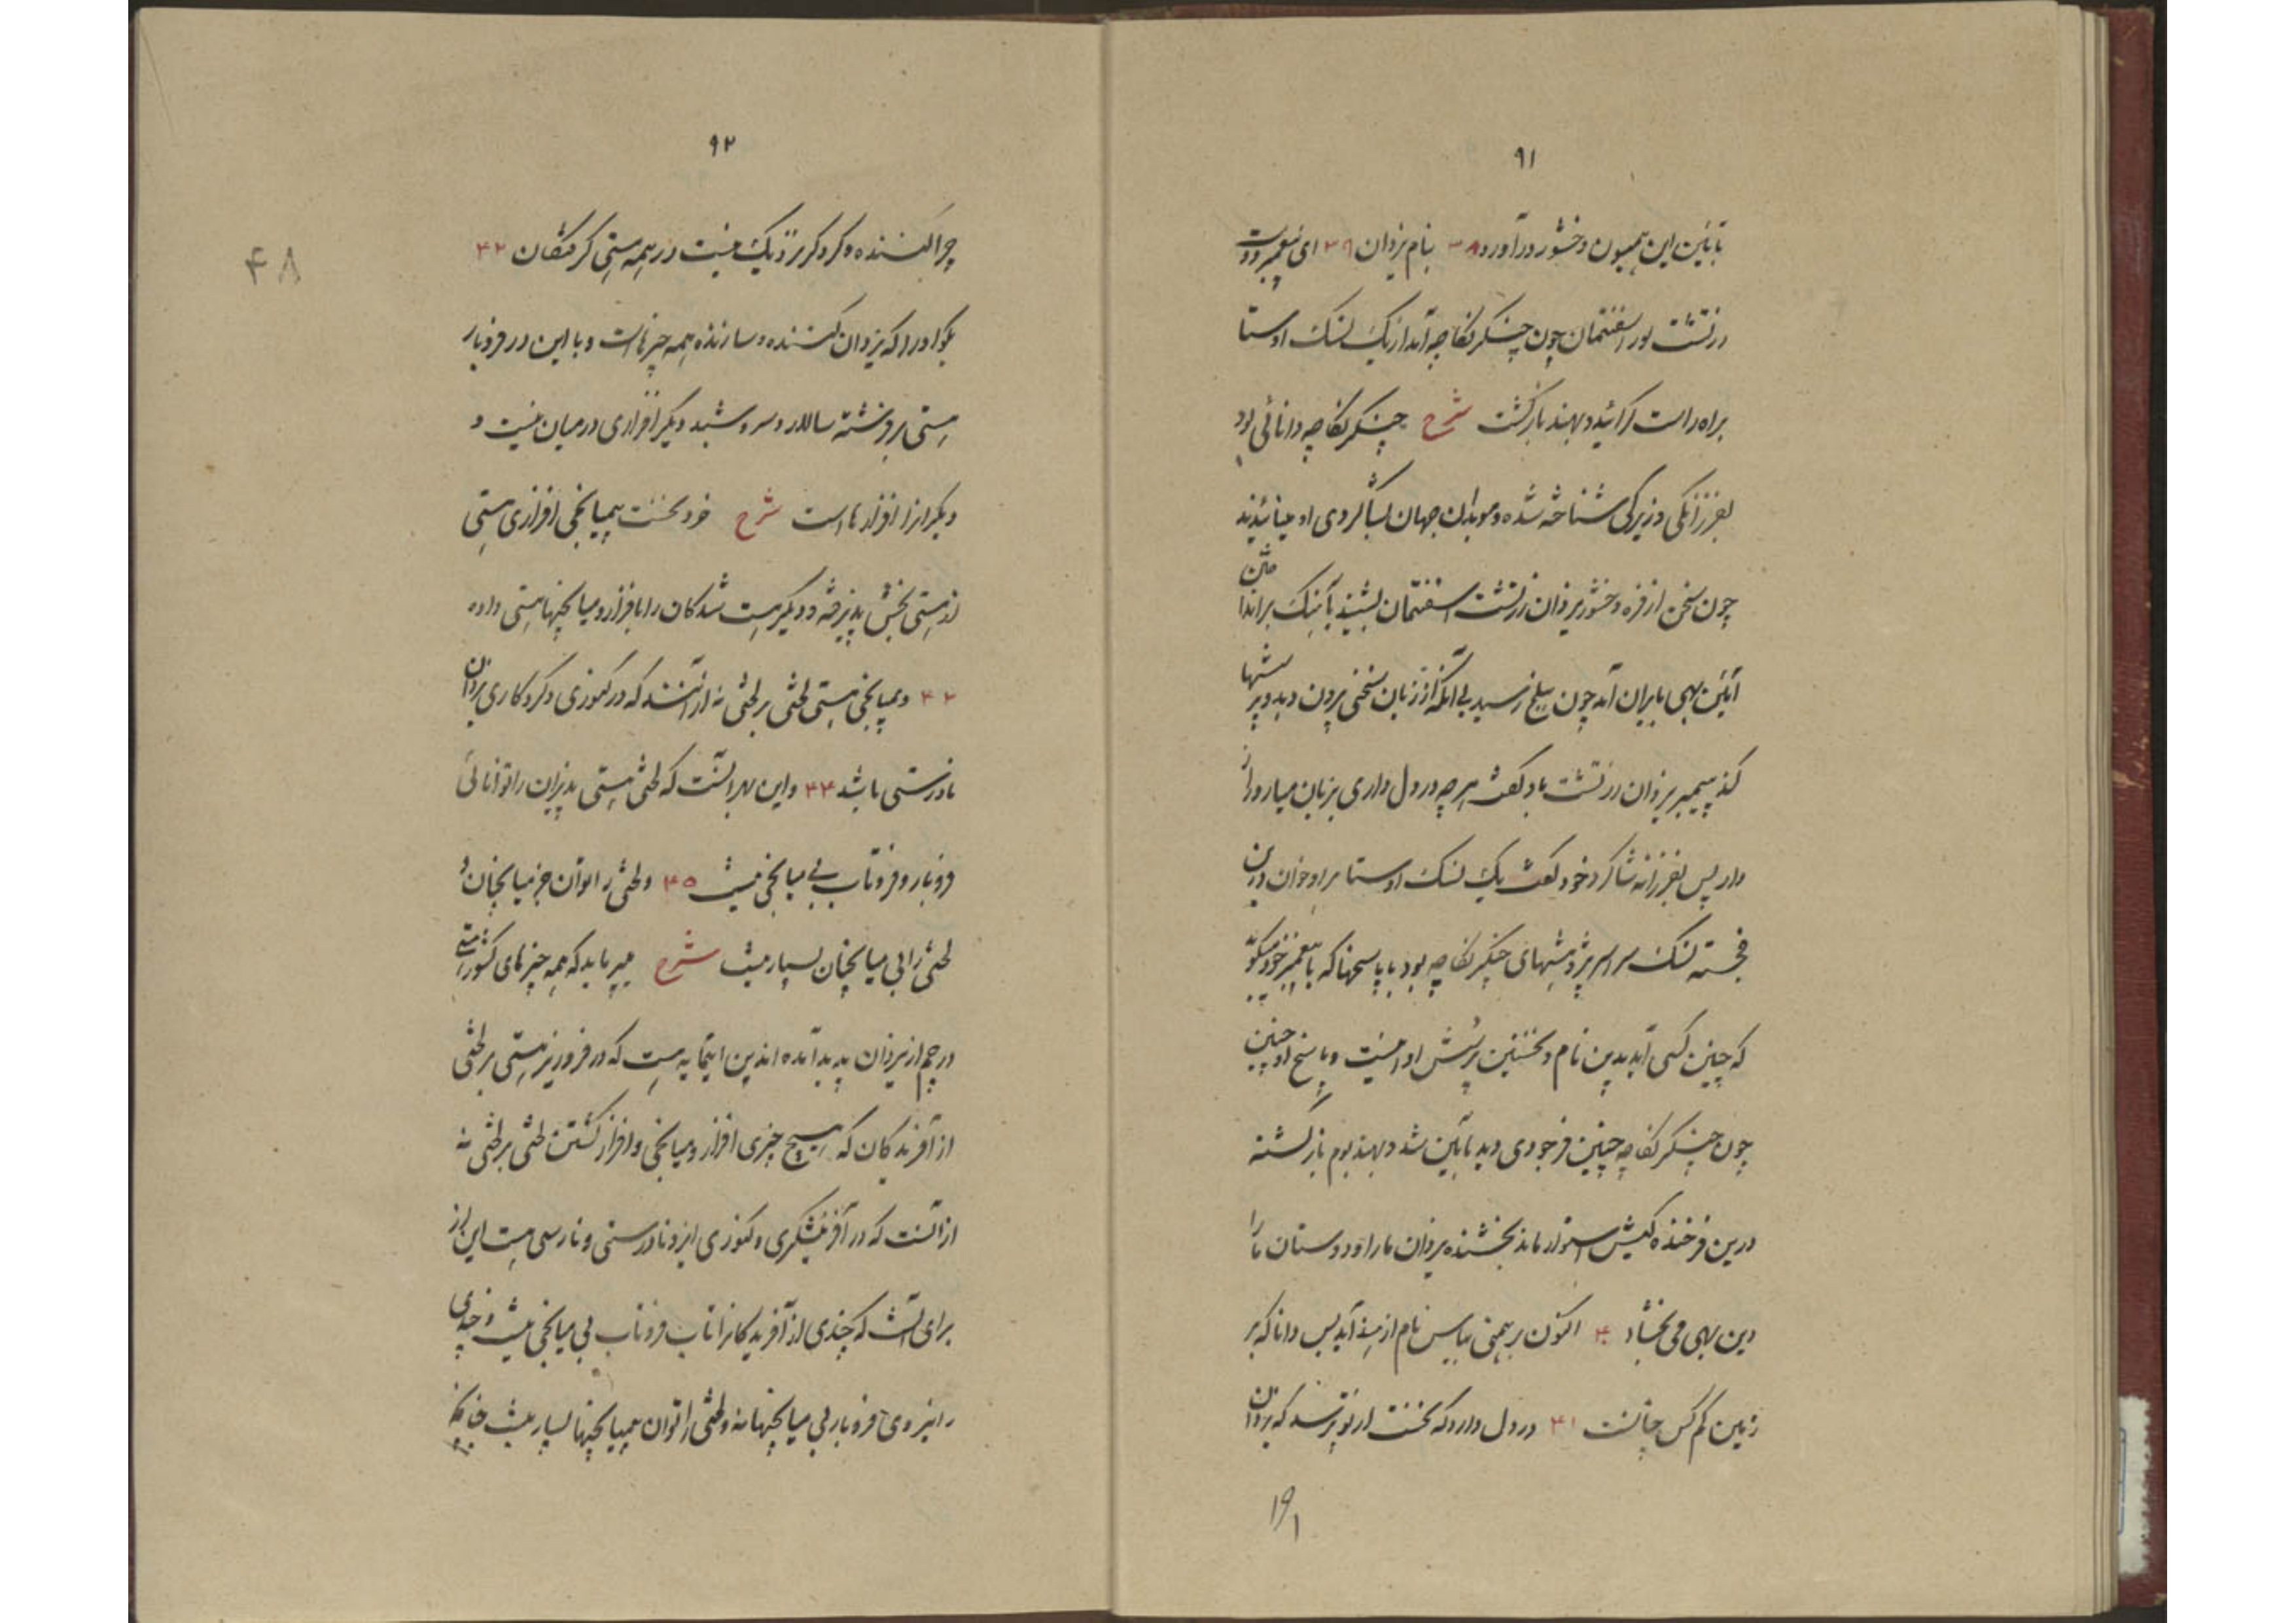 ۹۱
بآئین این همیون وخشور درآورد ۳۸ بنام یزدان ۳۹ ای پیغمبر دوست
زرتشت پور اسفنتمان چون چنگرنگاچه آمد از یک نسک اوستا
براه راست گرائید و بهند بازگشت شرح چنگرنگاچه دانائی بود
بفرزانگی و زیرکی شناخته شده و موبدان جهان بشاگردی او مینازیدند
چون سخن از فره وخشور یزدان زرتشت اسفنتمان بشنید بآهنگ برانداختن
آئین بهی بایران آمد چون ببلخ رسید بی آنکه از زبان سخنی برون دهد و پرسشها
کند پیمبر یزدان زرتشت باو گفت هرچه در دل داری بر زبان میار و راز
دار پس بفرزانه شاگرد خود گفت یک نسک اوستا بر او خوان درین
خجسته نسک سراسر پژوهشهای چنگرنگاچه بود با پاسخها که با پیغمبر خود میگوید
که چنین کسی آید بدین نام و نخستین پرسش او اینست و پاسخ او چنین
چون چنگرنگاچه چنین فرجودی دید بآئین شد و بهند بوم بازگشته
درین فرخنده کیش استوار ماند بخشنده یزدان ما را و دوستان ما را
دین بهی می بخشاد ۴۰ اکنون برهمنی بیاس نام از هند آید بس دانا که بر
زمین کم کس چنانست ۴۱ در دل دارد که نخست از تو پرسد که یزدان
۱۹۱
۹۲
چرا کننده و کردگر نزدیک نیست در همه هستی گرفتگان ۴۲
بگو او را که یزدان کننده و سازنده همه چیزهاست و با این در فروبار
هستی بر فرشته سالار و سروشبد دیگر افزاری در میان نیست و
دیگران را افزارهاست شرح خرد نخست بی میانجی افزاری هستی
از هستی بخش پذیرفته و دیگر هست شدگان را بافزار و میانجیها هستی داده
۴۳ و بمیانجی هستی لختی بر لختی نه از آنند که در کنوزی و کردگاری یزدان
نادرستی باشد ۴۴ و این بهر آنست که لختی هستی پذیران را توانائی
فروبار و فروتاب بی میانجی نیست ۴۵ و لختی را توان جز میانجیان و
لختی را بی میانجیان بسیار نیست شرح میرباید که همه چیزهای کشور هستی
در چم از یزدان پدید آمده اند پن اینمایه هست که در فرو ریز هستی بر لختی
از آفریدگان که هیچ چیزی افزار و میانجی و افزار گشتن لختی بر لختی نه
از آنست که در آفرینشگری و کنوزی ایزد نادرستی و نارسی هست این از
برای آنست که چندی از آفریدگانرا تاب فروتاب بی میانجی نیست و چندی
را نیروی فروبار بی میانجیها نه و لختی را توان بی میانجیها بسیار نیست چنانچه
۴۸